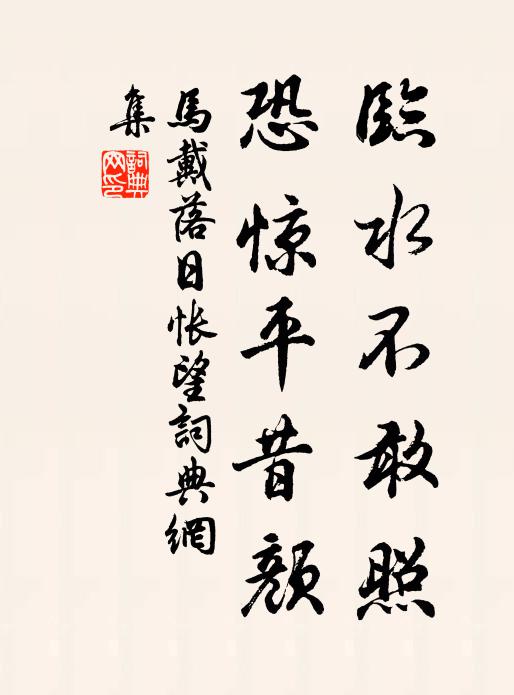 臨水不敢照
恐惊平昔顔
馬戴落日怅望詞典網
集
詞典網印